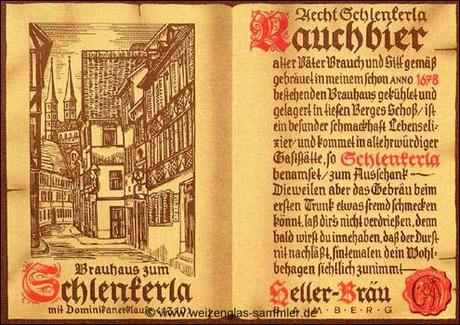 Brauhaus zum
Schlenkerla
mit Dominikanerklause (1310)
Aecht Schlenkerla
Rauchbier
alter Väter Brauch und Sitt gemäß
gebrauet in meinem schon ANNO 1678
bestehenden Brauhaus gekühlet und
gelagert in tiefen Berges Schoß / ist
ein besunder schmackhaft Lebenseli-
xier / und kommet in altehrwürdiger
Gaststätte, so Schlenkerla
benamset / zum Ausschank —
Dieweilen aber das Gebräu beim
ersten Trunk etwas fremd schmecken
könnt, laß dirs nicht verdrießen, denn
bald wirst du innehaben, daß der Durst
nit nachläßt, sintemalen dein Wohl-
behagen sichtlich zunimmt
Heller-Bräu
BAMBERG
©www.weizenglas-sammler.de